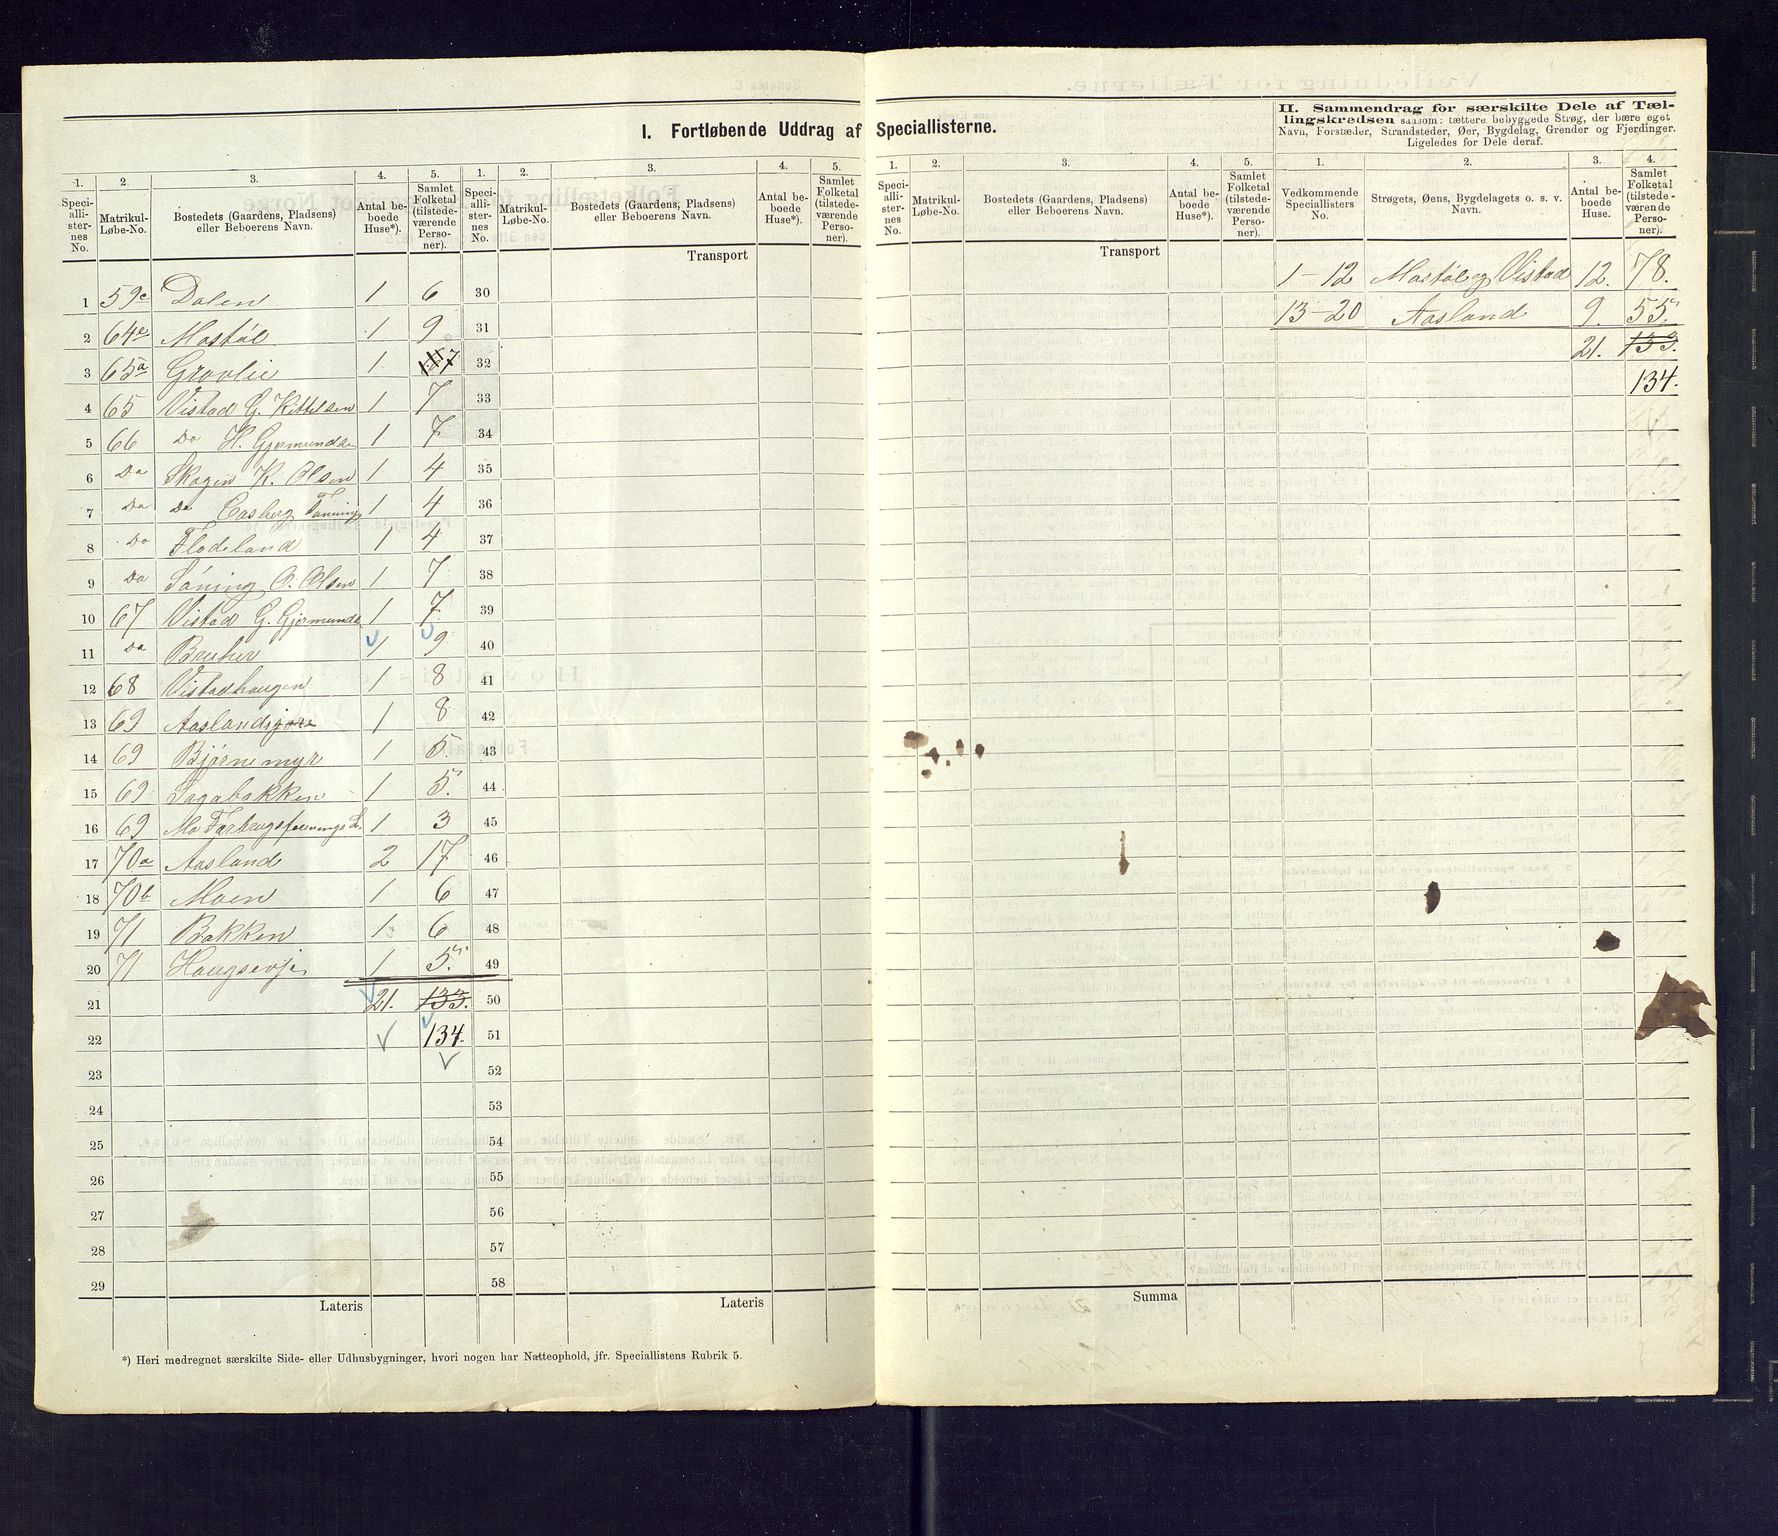 I. Fortløbende Uddrag af Speciallisterne.
II. Sammendrag for særskilte Dele af Tæl-
lingskredsen saasom: tættere bebyggede Strøg, der bære eget
Navn, Forstæder, Strandsteder, Øer, Bygdelag, Grender og Fjerdinger.
Ligeledes for Dele deraf.
1. 2. 3. 4. 5. 1. 2. 3. 4. 5. 1. 2. 3. 4. 5. 1. 2. 3. 4.
Speciallisternes No. Matrikul-Løbe-No. Bostedets (Gaardens, Pladsens) eller Beboerens Navn. Antal beboede Huse*). Samlet Folketal (tilstedeværende Personer).
Speciallisternes No. Matrikul-Løbe-No. Bostedets (Gaardens, Pladsens) eller Beboerens Navn. Antal beboede Huse*). Samlet Folketal (tilstedeværende Personer).
Speciallisternes No. Matrikul-Løbe-No. Bostedets (Gaardens, Pladsens) eller Beboerens Navn. Antal beboede Huse*). Samlet Folketal (tilstedeværende Personer).
Vedkommende Speciallisters No. Strøgets, Øens, Bygdelagets o. s. v. Navn. Antal beboede Huse. Samlet Folketal (tilstedeværende Personer).
Transport Transport
1 59c Dalen 1 6 30
2 64e Mostøl 1 9 31
3 65a Grovlie 1 7 32
4 65 Vistad G. Kittelsen 1 7 33
5 66 Do H. Gjermundsn 1 7 34
6 Do Skogen K. Olsen 1 4 35
7 Do Do 1 4 36
8 Do Flodeland 1 4 37
9 Do O. Olsen 1 7 38
10 67 Vistad G. Gjermunds 1 7 39
11 Do 1 9 40
12 68 Vistadhaugen 1 8 41
13 69 Aasland 1 8 42
14 69 Bjørnemyr 1 5. 43
15 69 Sagabakken 1 5. 44
16 69 1 3 45
17 70a Aasland 2 17 46
18 70b Moen 1 6 47
19 71 Bakken 1 6 48
20 71 Haugsevje 1 5. 49
21 21. 133. 50
22 134. 51
23 52
24 53
25 54
26 55
27 56
28 57
29 58
Lateris Lateris Summa
*) Heri medregnet særskilte Side- eller Udhusbygninger, hvori nogen har Natteophold, jfr. Speciallistens Rubrik 5.
1-12 Mostøl og Vistad 12. 78.
13-20 Aasland 9. 55.
21. 133.
134.